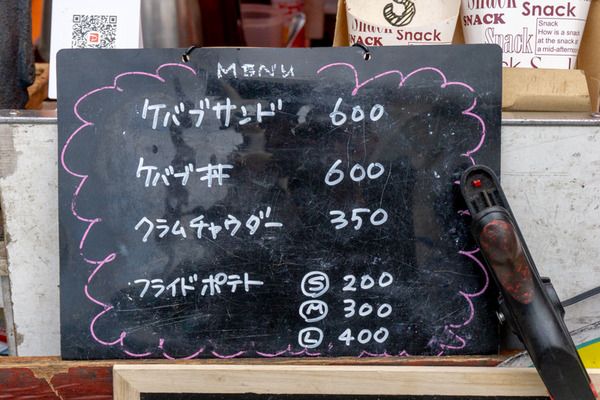 Snack
SNACK Snack
Snack
SNACK Snack
Snack
How is a snac
at the snack a
a mid-afternoo
MENU
ケバブサンド 600
ケバブ丼 600
クラムチャウダー 350
フライドポテト Ⓢ 200
Ⓜ 300
Ⓛ 400